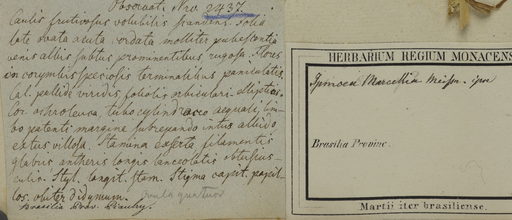 Observat. Nro. 2437.
Caulis fruticosus volubilis scandens. Folia
late ovata acuta cordata molliter pubescentia
venis albis subtus prominentibus rugosa. Flores
in corymbis speciosis terminalibus paniculatis
Cal. pallide viridis foliolis orbiculari-ellipticis.
Cor. ochroleuca, tubo cylindraceo aequali, lim-
bo patenti margine subrepando intus albido
extus villoso. Stamina filamentis
glabris antheris longis lanceolatis obtusius-
culis. Styl. longit. stam. Stigma capit. papil-
los. obiter didymum. Ovula quatuor
Brasilia Prov. Piauhy.
HERBARIUM REGIUM MONACENS
Ipomoea Marcellia Meisn. ipse
Brasilia Provinc.
Martii iter brasiliense.